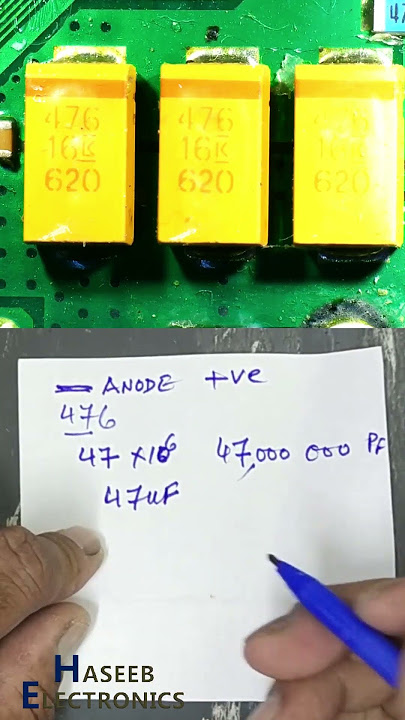 47
476
16K
620
476
16K
620
476
16K
620
ANODE +ve
476
47 x10⁶ 47,000 000 PF
47uF
HASEEB
ELECTRONICS